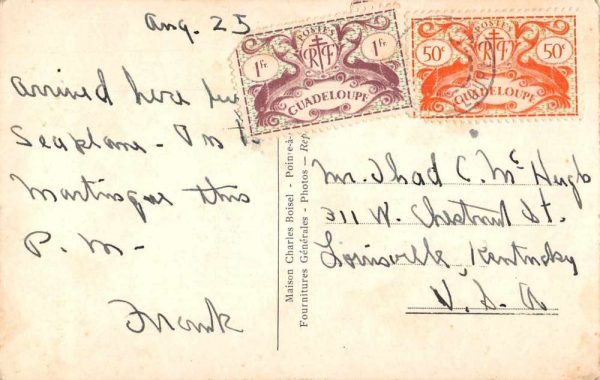 Aug. 25
arrived here by
Seaplane -
Martinique this
P. M -
Frank
POSTES
1 Fr.
RF
1 Fr.
GUADELOUPE
POSTES
50c
RF
50c
GUADELOUPE
Maison Charles Boisel - Pointe-à-
Fournitures Générales - Photos - Rep
Mr. Thad C. McHugh
311 W. Chestnut St.
Louisville, Kentucky
U. S. A